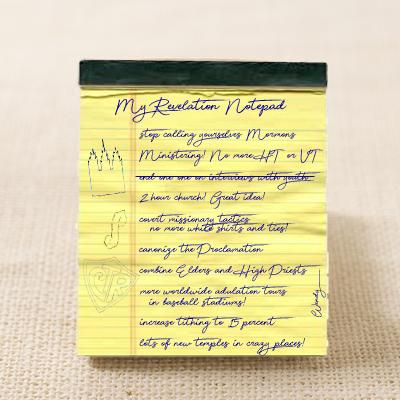 My Revelation Notepad
stop calling yourselves Mormons
Ministering! No more HT or VT
end one on one interviews with youth
2 hour church! Great idea!
covert missionary tactics
no more white shirts and ties!
canonize the Proclamation
combine Elders and High Priests
more worldwide adulation tours
in baseball stadiums!
increase tithing to 15 percent
lots of new temples in crazy places!
Wendy